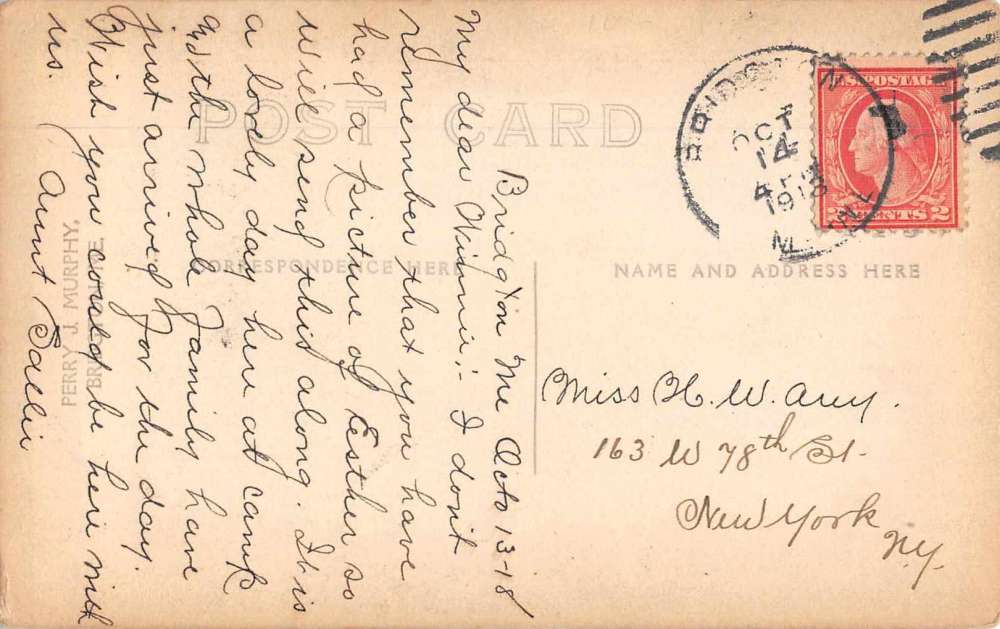 POST CARD
CORRESPONDENCE HERE
NAME AND ADDRESS HERE
PERRY J. MURPHY,
BRIDGTON, ME.
Bridgton Me Octo 13-18
My dear Winnie:- I don't
remember that you have
had a picture of Esther so
will send this along. It is
a lovely day here at camp
and the whole family have
just arrived for the day.
Wish you could be here with
us. Aunt Sallie
Miss H. W. Avey.
163 W 78th St.
New York
N.Y.
BRIDGTON
OCT
14
1918
MAINE
U.S. POSTAGE
2 CENTS 2